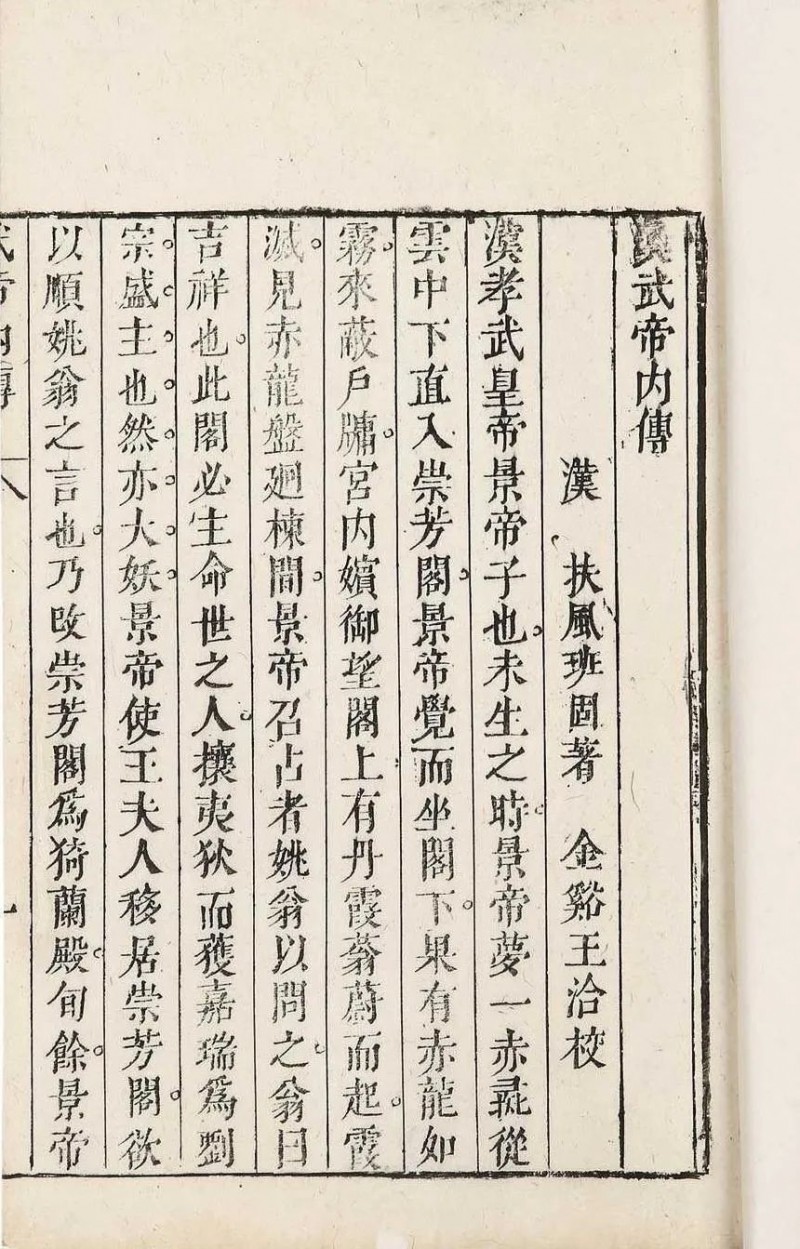 漢武帝内傳
漢　扶風班固著　金谿王洽校
漢孝武皇帝景帝子也。未生之時。景帝夢一赤彘從
雲中下直入崇芳閣。景帝覺而坐閣下。果有赤龍如
霧。來蔽戶牗。宮内嬪御望閣上有丹霞蓊蔚而起。霞
滅。見赤龍盤廻棟間。景帝召占者姚翁以問之。翁曰
吉祥也。此閣必生命世之人。攘夷狄而獲嘉瑞爲劉
宗。盛。主。也。然。亦。大。妖。景帝使王夫人移居崇芳閣。欲
以順姚翁之言也。乃改崇芳閣爲猗蘭殿。旬餘。景帝
武帝内傳　八